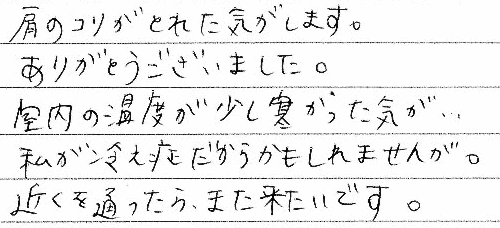 肩のコリがとれた気がします。
ありがとうございました。
室内の温度が少し寒かった気が…
私が冷え症だからかもしれませんが。
近くを通ったら、また来たいです。